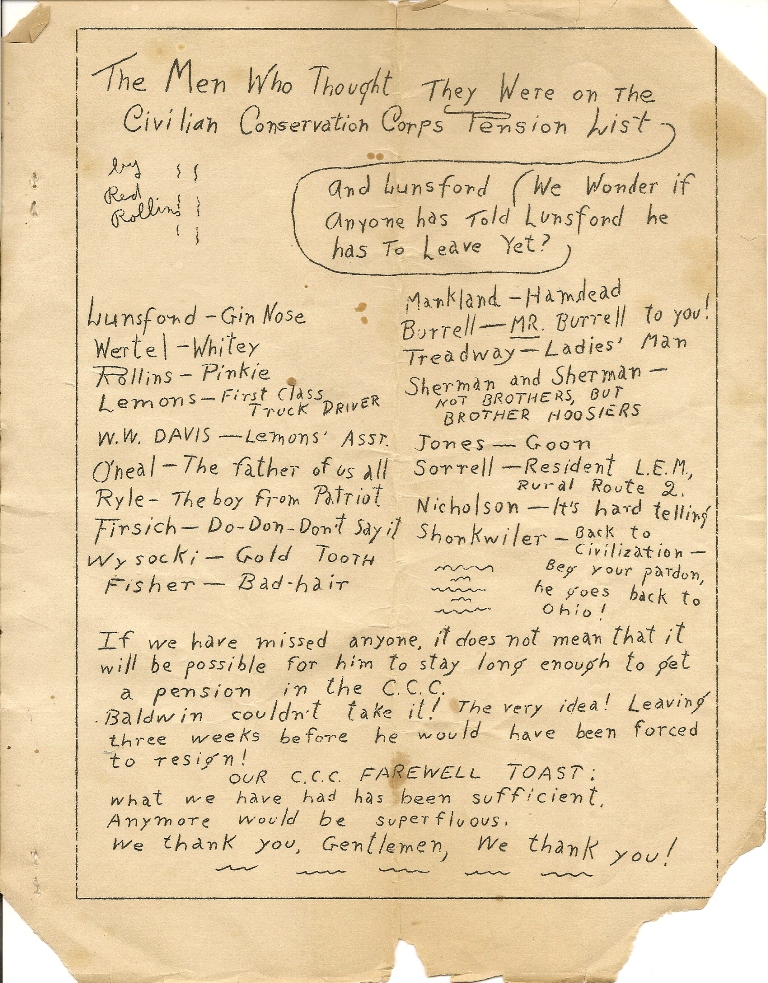 The Men Who Thought They Were on The
Civilian Conservation Corps Tension List
by
Red
Rollins
And Lunsford (We Wonder if
Anyone has Told Lunsford he
has To Leave Yet?)
Lunsford – Gin Nose
Wertel – Whitey
Rollins – Pinkie
Lemons – First Class
Truck DRIVER
W.W. DAVIS – Lemons' Asst.
O'neal – The father of us all
Ryle – The boy from Patriot
Firsich – Do-Don-Don't Say it
Wysocki – Gold Tooth
Fisher – Bad-hair
Mankland – Hamstead
Burrell – MR. Burrell to you!
Treadway – Ladies' Man
Sherman and Sherman –
NOT BROTHERS, BUT
BROTHER HOOSIERS
Jones – Goon
Sorrell – Resident L.E.M.,
Rural Route 2.
Nicholson – It's hard telling
Shonkwiler – Back to
Civilization –
Beg your pardon,
he goes back to
Ohio!
If we have missed anyone, it does not mean that it
will be possible for him to stay long enough to get
a pension in the C.C.C.
Baldwin couldn't take it! The very idea! Leaving
three weeks before he would have been forced
to resign!
OUR C.C.C. FAREWELL TOAST:
what we have had has been sufficient.
Anymore would be superfluous.
We thank you, Gentlemen, We thank you!